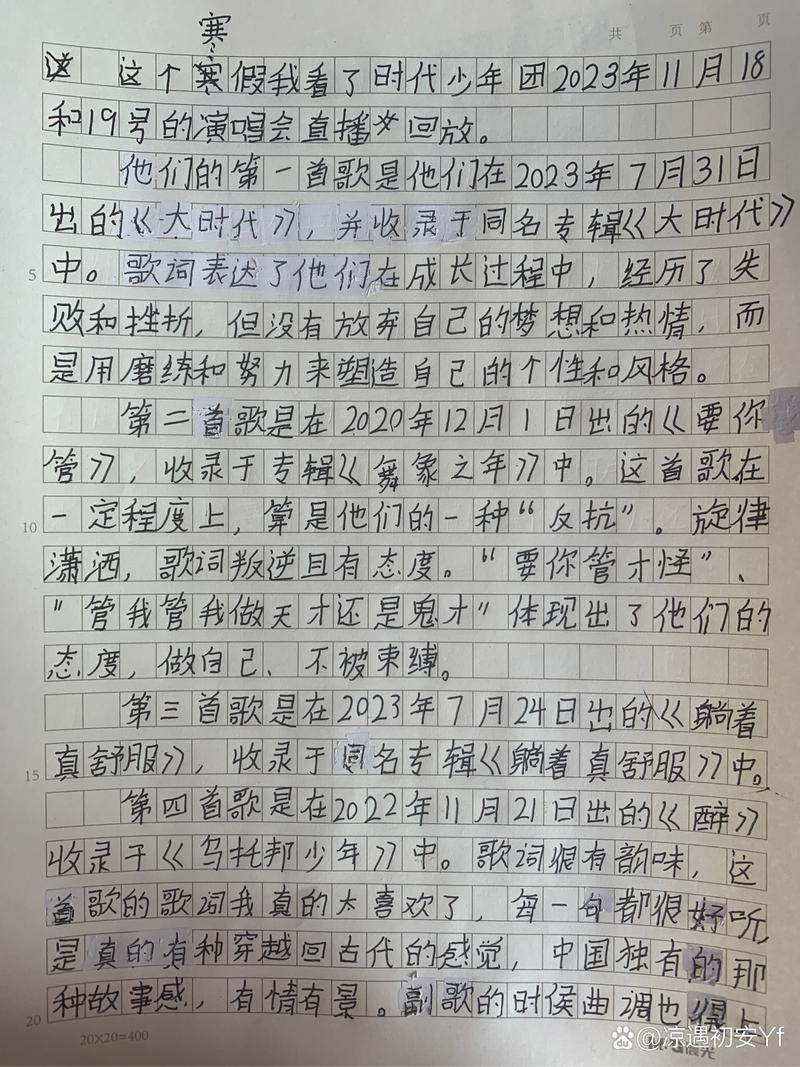 共 页 第 页
寒
这个寒假我看了时代少年团2023年11月18
和19号的演唱会直播回放。
他们的第一首歌是他们在2023年7月31日
出的《大时代》，并收录于同名专辑《大时代》
5 中。歌词表达了他们在成长过程中，经历了失
败和挫折，但没有放弃自己的梦想和热情，而
是用磨练和努力来塑造自己的个性和风格。
第二首歌是在2020年12月1日出的《要你
管》，收录于专辑《舞象之年》中。这首歌在
10 一定程度上，算是他们的一种“反抗”。旋律
潇洒，歌词叛逆且有态度。“要你管才怪”、
“管我管我做天才还是鬼才”体现出了他们的
态度，做自己、不被束缚。
第三首歌是在2023年7月24日出的《躺着
15 真舒服》，收录于同名专辑《躺着真舒服》中。
第四首歌是在2022年11月21日出的《醉》
收录于《乌托邦少年》中。歌词很有韵味，这
首歌的歌词我真的太喜欢了，每一句都很好听，
是真的有种穿越回古代的感觉，中国独有的那
20 种故事感，有情有景。副歌的时侯曲调也很上
20×20=400
晨光
Bai @凉遇初安Yf